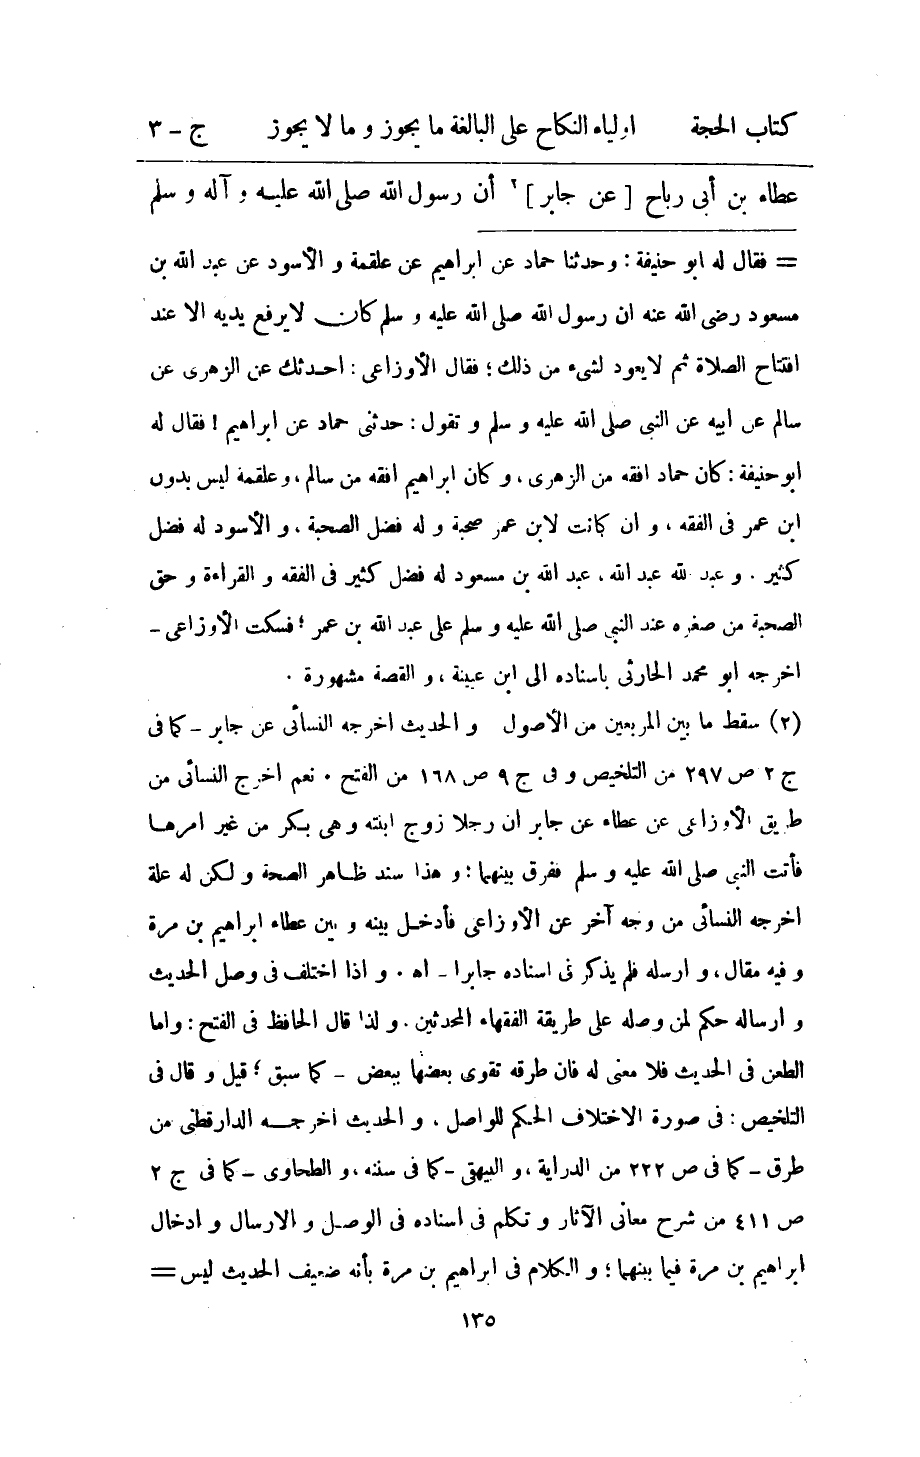 كتاب الحجة اولياء النكاح على البالغة ما يجوز و ما لا يجوز ج ـ ٣
عطاء بن أبى رباح [ عن جابر ] ٢ أن رسول الله صلى الله عليه و آله و سلم
= فقال له ابو حنيفة : و حدثنا حماد عن ابراهيم عن علقمة و الأسود عن عبد الله بن
مسعود رضى الله عنه ان رسول الله صلى الله عليه و سلم كان لا يرفع يديه الا عند
افتتاح الصلاة ثم لا يعود لشىء من ذلك ؛ فقال الأوزاعى : احدثك عن الزهرى عن
سالم عن ابيه عن النبى صلى الله عليه و سلم و تقول : حدثنى حماد عن ابراهيم ! فقال له
ابو حنيفة : كان حماد افقه من الزهرى ، و كان ابراهيم افقه من سالم ، و علقمة ليس بدون
ابن عمر فى الفقه ، و ان كانت لابن عمر صحبة و له فضل الصحبة ، و الأسود له فضل
كثير . و عبد الله عبد الله ، عبد الله بن مسعود له فضل كثير فى الفقه و القراءة و حق
الصحبة من صغره عند النبى صلى الله عليه و سلم على عبد الله بن عمر ؛ فسكت الأوزاعى ـ
اخرجه ابو محمد الحارثى باسناده الى ابن عيينة ، و القصة مشهورة .
(٢) سقط ما بين المربعين من الأصول و الحديث اخرجه النسائى عن جابر ـ كما فى
ج ٢ ص ٢٩٧ من التلخيص و فى ج ٩ ص ١٦٨ من الفتح . نعم اخرج النسائى من
طريق الأوزاعى عن عطاء عن جابر ان رجلا زوج ابنته و هى بكر من غير امرها
فأتت النبى صلى الله عليه و سلم ففرق بينهما ؛ و هذا سند ظاهر الصحة و لكن له علة
اخرجه النسائى من وجه آخر عن الأوزاعى فأدخل بينه و بين عطاء ابراهيم بن مرة
و فيه مقال ، و ارسله فلم يذكر فى اسناده جابرا ـ اه . و اذا اختلف فى وصل الحديث
و ارساله حكم لمن وصله على طريقة الفقهاء المحدثين . و لذا قال الحافظ فى الفتح : و اما
الطعن فى الحديث فلا معنى له فان طرقه تقوى بعضها ببعض ـ كما سبق ؛ قيل و قال فى
التلخيص : فى صورة الاختلاف الحكم للواصل ، و الحديث اخرجه الدارقطنى من
طرق ـ كما فى ص ٢٢٢ من الدراية ، و البيهقى ـ كما فى سننه ، و الطحاوى ـ كما فى ج ٢
ص ٤١١ من شرح معانى الآثار و تكلم فى اسناده فى الوصل و الارسال و ادخال
ابراهيم بن مرة فيما بينهما ؛ و الكلام فى ابراهيم بن مرة بأنه ضعيف الحديث ليس =
١٣٥